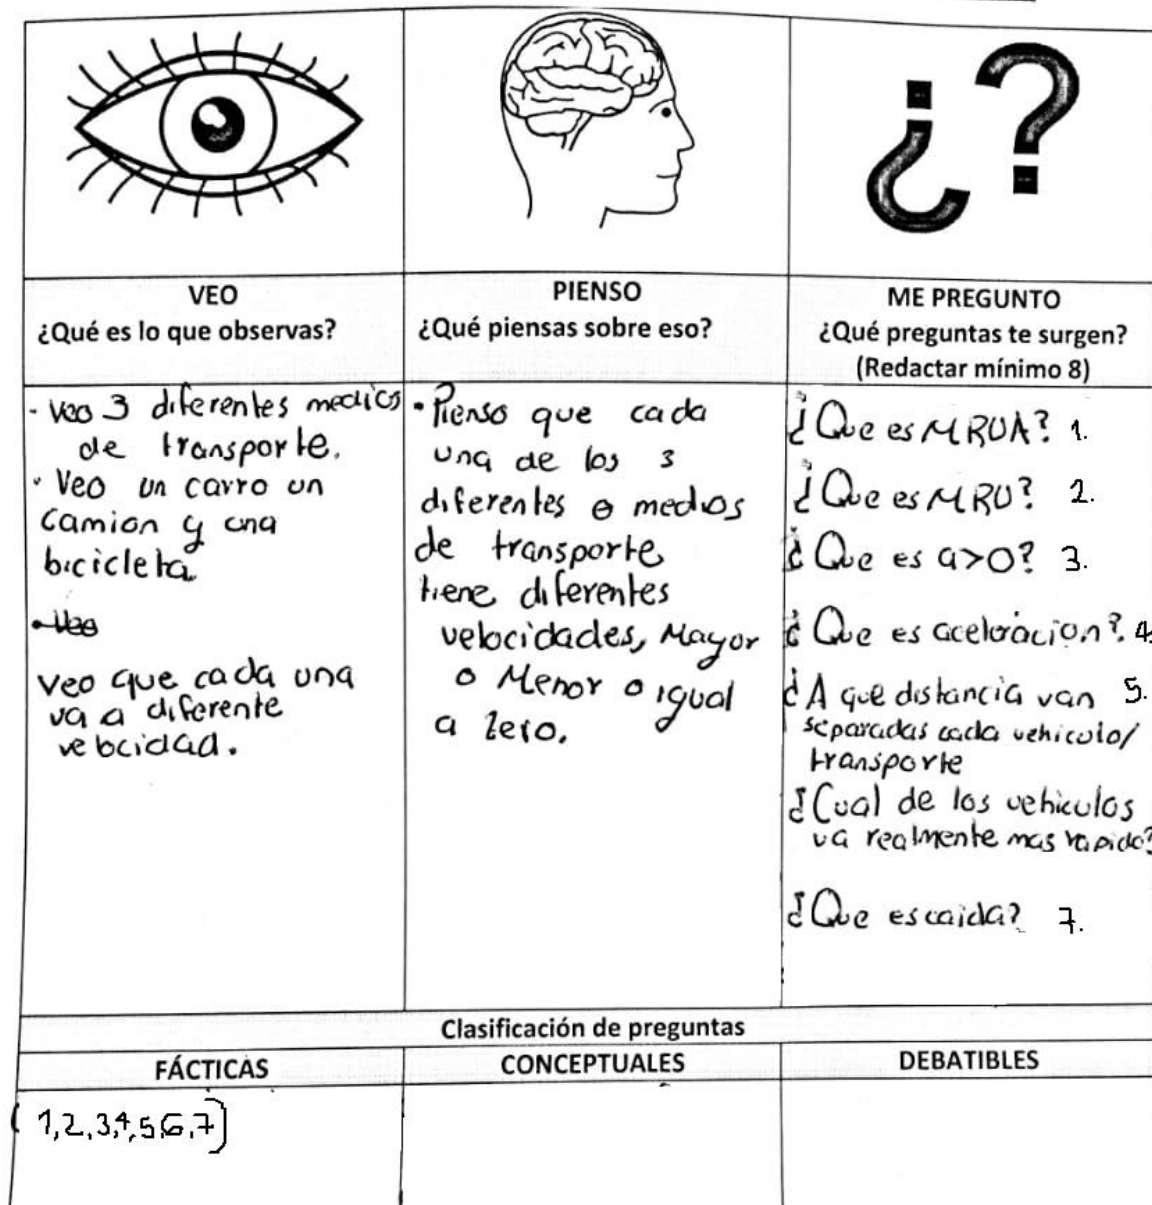 ¿?
VEO
¿Qué es lo que observas?
PIENSO
¿Qué piensas sobre eso?
ME PREGUNTO
¿Qué preguntas te surgen?
(Redactar mínimo 8)
- Veo 3 diferentes medios
de transporte.
• Veo un carro un
camion y una
bicicleta.
• Veo
veo que cada una
va a diferente
velocidad.
• Pienso que cada
una de los 3
diferentes medios
de transporte
tiene diferentes
velocidades, Mayor
o Menor o igual
a zero.
¿Que es MRUA? 1.
¿Que es MRU? 2.
¿Que es a>0? 3.
¿Que es aceleracion? 4.
¿A que distancia van 5.
separadas cada vehiculo/
transporte
¿Cual de los vehiculos
va realmente mas rapido?
¿Que es caida? 7.
Clasificación de preguntas
FÁCTICAS
CONCEPTUALES
DEBATIBLES
(1,2,3,4,5,6,7)